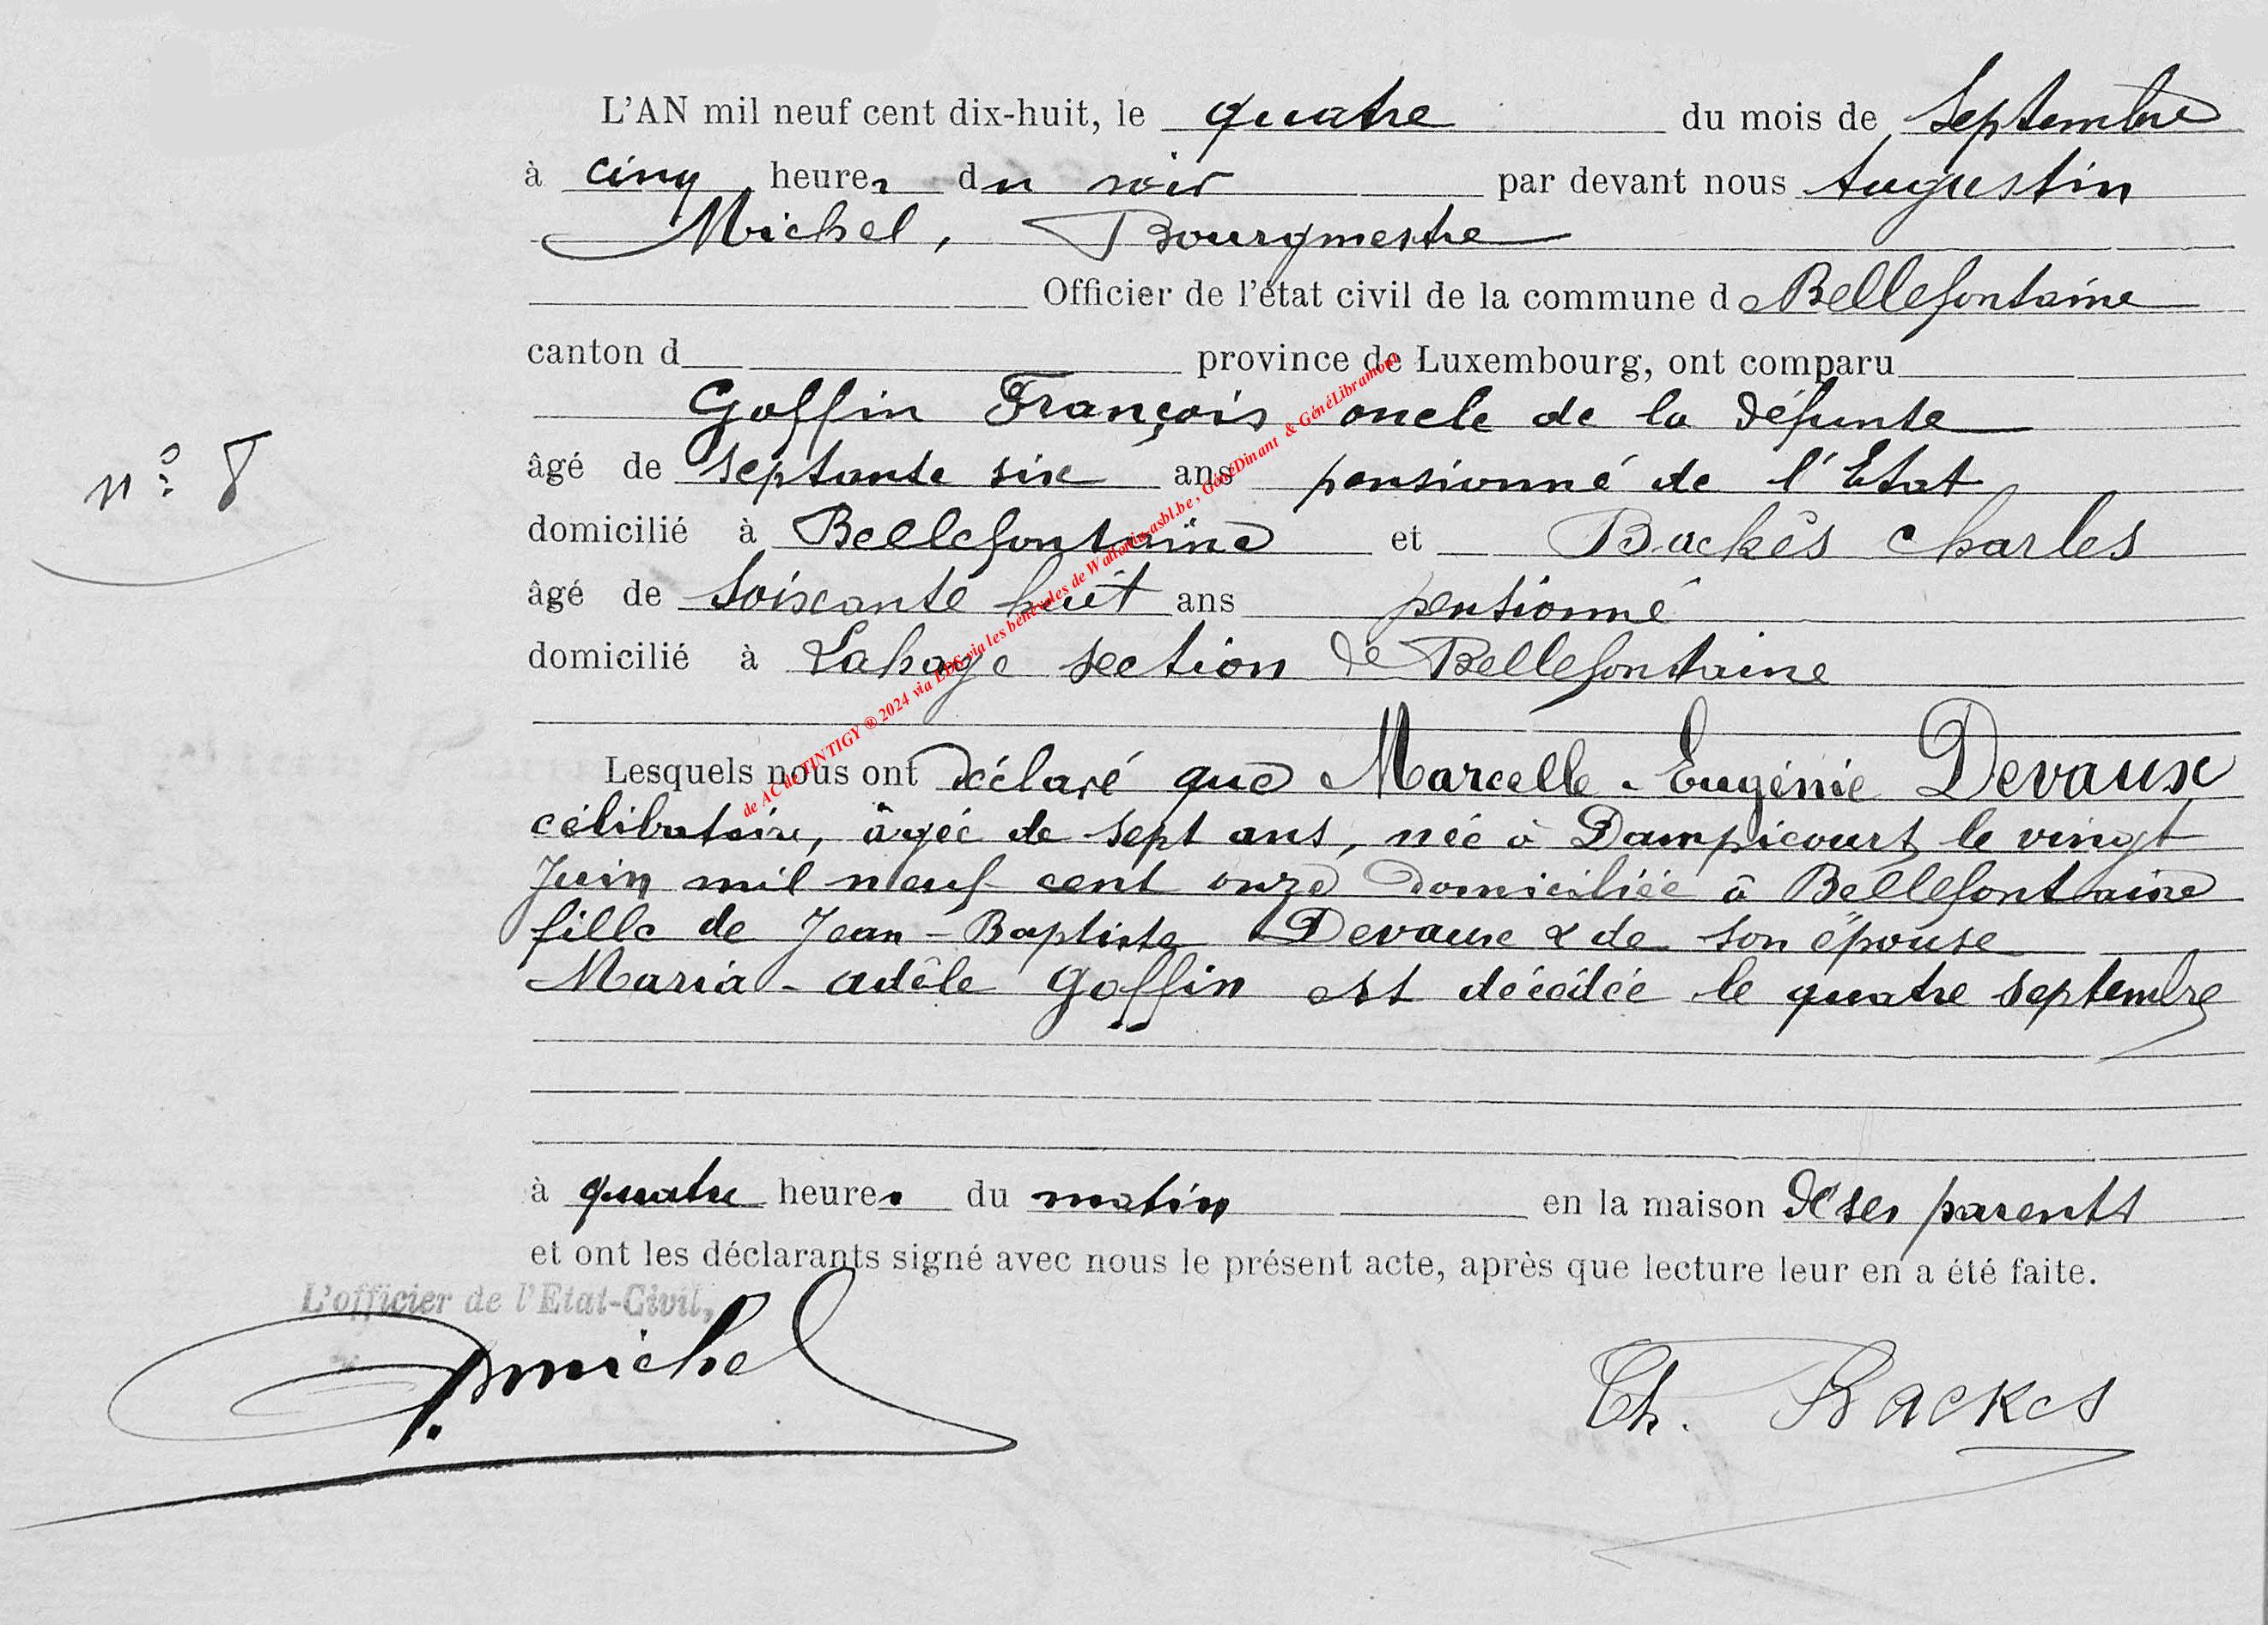 L'AN mil neuf cent dix-huit, le quatre du mois de Septembre
à cinq heures du soir par devant nous Augustin
Michel, Bourgmestre
Officier de l'état civil de la commune de Bellefontaine
canton d province de Luxembourg, ont comparu
Goffin François oncle de la défunte
n° 8
âgé de septante six ans pensionné de l'Etat
domicilié à Bellefontaine et Backès Charles
âgé de soixante huit ans pensionné
domicilié à Lahage section de Bellefontaine
Lesquels nous ont déclaré que Marcelle - Eugénie Devaux
célibataire, âgée de sept ans, née à Dampicourt le vingt
Juin mil neuf cent onze domiciliée à Bellefontaine
fille de Jean - Baptiste Devaux & de son épouse
Maria - adèle Goffin est décédée le quatre septembre
à quatre heures du matin en la maison de ses parents
et ont les déclarants signé avec nous le présent acte, après que lecture leur en a été faite.
L'officier de l'Etat-Civil,
Amichel
Ch. Backes
de AC de TINTIGY ® 2024 via EDS via les bénévoles de Wallonia-asbl.be , GénéDinant & GénéLibramont